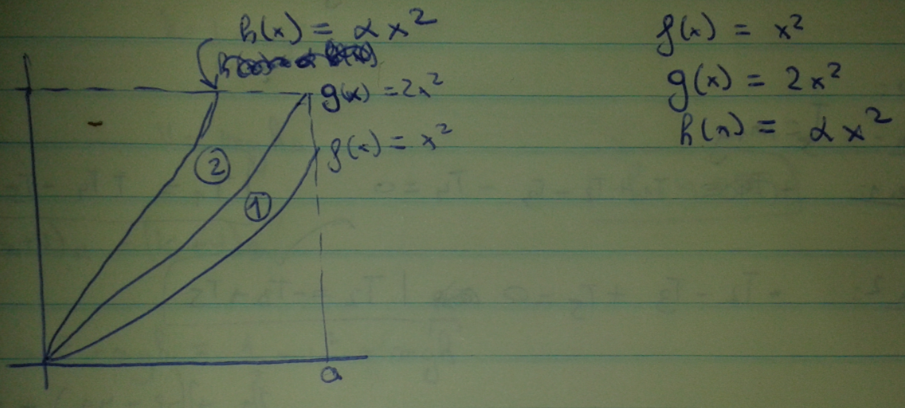 h(x) = αx²
g(x) = 2x²
f(x) = x²
②
①
a
f(x) = x²
g(x) = 2x²
h(x) = αx²